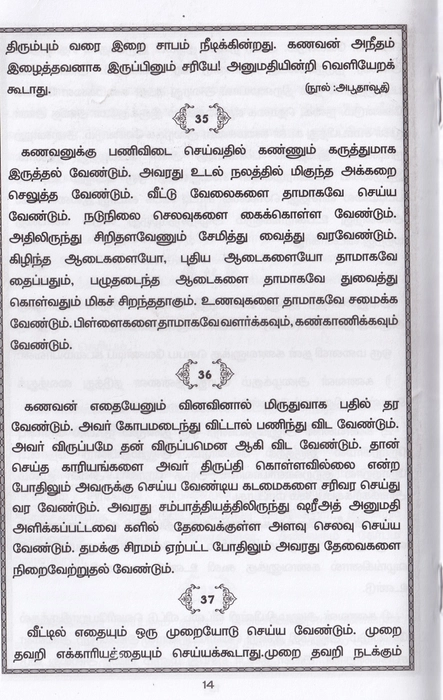 திரும்பும் வரை இறை சாபம் நீடிக்கின்றது. கணவன் அநீதம்
இழைத்தவனாக இருப்பினும் சரியே! அனுமதியின்றி வெளியேறக்
கூடாது. (நூல் :அபூதாவூதி)
35
கணவனுக்கு பணிவிடை செய்வதில் கண்ணும் கருத்துமாக
இருத்தல் வேண்டும். அவரது உடல் நலத்தில் மிகுந்த அக்கறை
செலுத்த வேண்டும். வீட்டு வேலைகளை தாமாகவே செய்ய
வேண்டும். நடுநிலை செலவுகளை கைக்கொள்ள வேண்டும்.
அதிலிருந்து சிறிதளவேணும் சேமித்து வைத்து வரவேண்டும்.
கிழிந்த ஆடைகளையோ, புதிய ஆடைகளையோ தாமாகவே
தைப்பதும், பழுதடைந்த ஆடைகளை தாமாகவே துவைத்து
கொள்வதும் மிகச் சிறந்ததாகும். உணவுகளை தாமாகவே சமைக்க
வேண்டும். பிள்ளைகளை தாமாகவே வளர்க்கவும், கண்காணிக்கவும்
வேண்டும்.
36
கணவன் எதையேனும் வினவினால் மிருதுவாக பதில் தர
வேண்டும். அவர் கோபமடைந்து விட்டால் பணிந்து விட வேண்டும்.
அவர் விருப்பமே தன் விருப்பமென ஆகி விட வேண்டும். தான்
செய்த காரியங்களை அவர் திருப்தி கொள்ளவில்லை என்ற
போதிலும் அவருக்கு செய்ய வேண்டிய கடமைகளை சரிவர செய்து
வர வேண்டும். அவரது சம்பாத்தியத்திலிருந்து ஷரீஅத் அனுமதி
அளிக்கப்பட்டவை களில் தேவைக்குள்ள அளவு செலவு செய்ய
வேண்டும். தமக்கு சிரமம் ஏற்பட்ட போதிலும் அவரது தேவைகளை
நிறைவேற்றுதல் வேண்டும்.
37
வீட்டில் எதையும் ஒரு முறையோடு செய்ய வேண்டும். முறை
தவறி எக்காரியத்தையும் செய்யக்கூடாது.முறை தவறி நடக்கும்
14